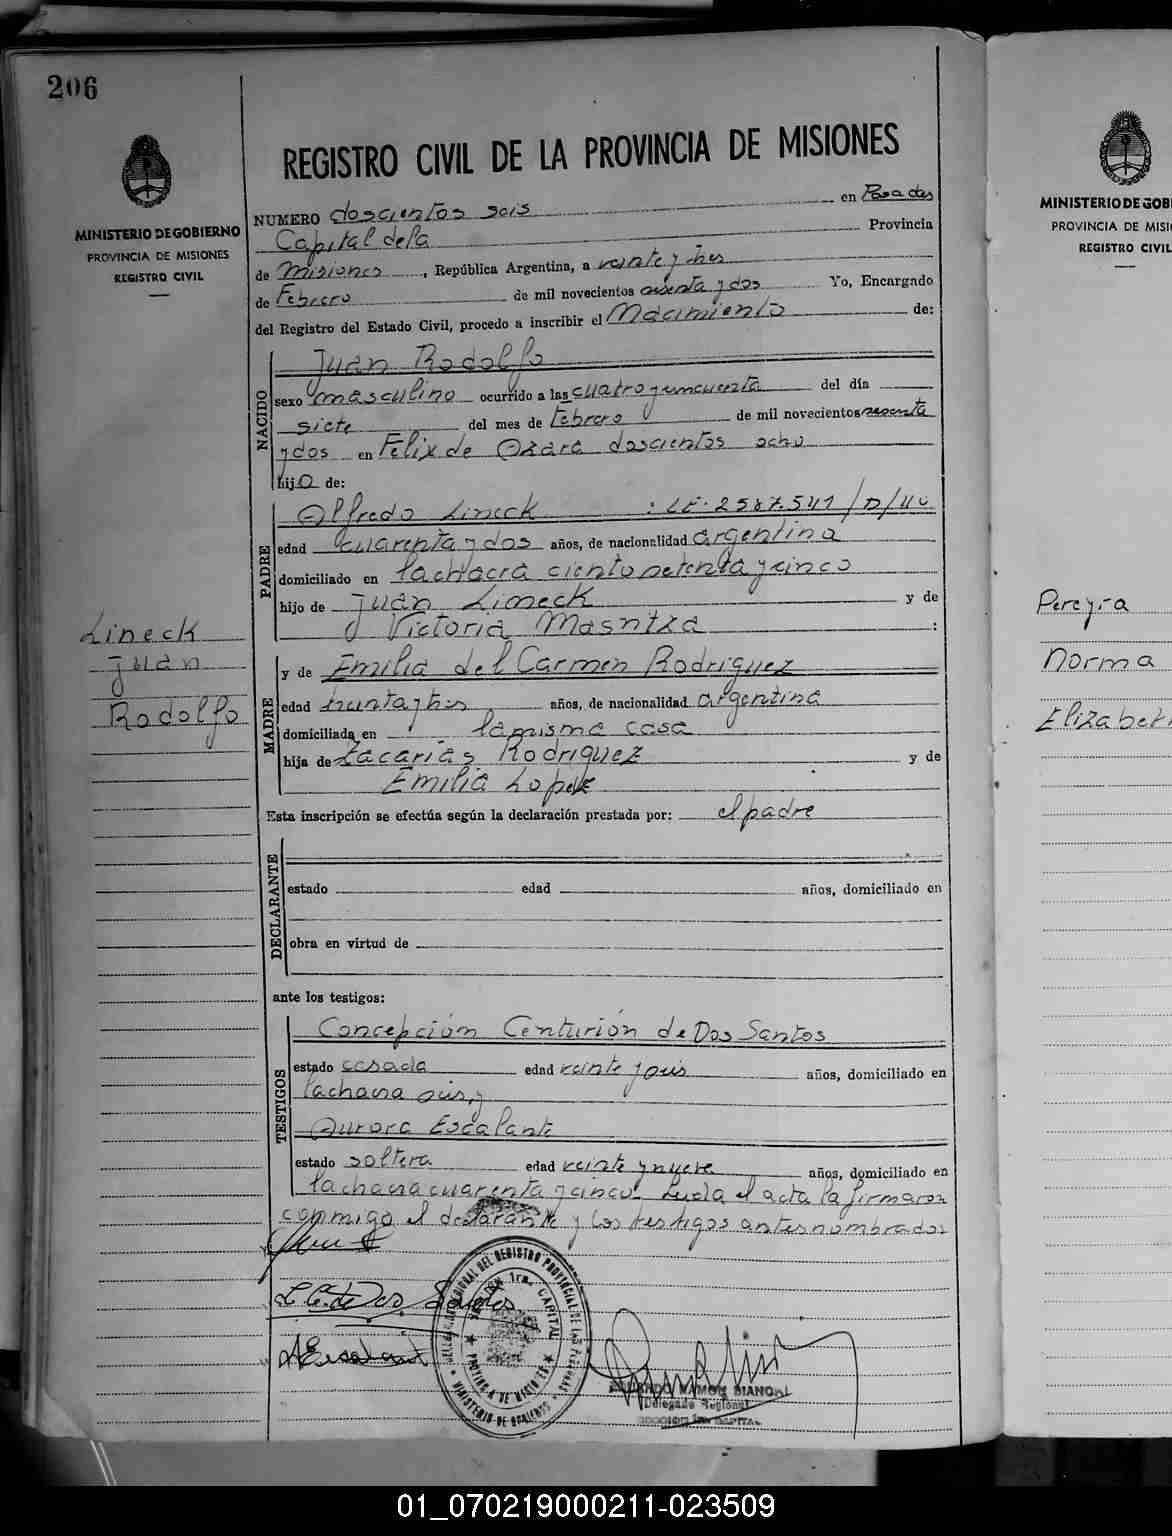 206
MINISTERIO DE GOBIERNO
PROVINCIA DE MISIONES
REGISTRO CIVIL
Lineck
Juan
Rodolfo
REGISTRO CIVIL DE LA PROVINCIA DE MISIONES
NUMERO doscientos seis en Posadas
Capital de la Provincia
de Misiones, República Argentina, a veinte y tres
de Febrero de mil novecientos sesenta y dos Yo, Encargado
del Registro del Estado Civil, procedo a inscribir el Nacimiento de:
NACIDO
Juan Rodolfo
sexo masculino ocurrido a las cuatro y cincuenta del día
siete del mes de Febrero de mil novecientos sesenta
y dos en Felix de Azara doscientos ocho
hijo de:
PADRE
Alfredo Lineck : LE. 2587.541/D/40
edad cuarenta y dos años, de nacionalidad argentina
domiciliado en la chacra ciento setenta y cinco
hijo de Juan Lineck y de
Victoria :
MADRE
y de Emilia del Carmen Rodriguez
edad treinta y tres años, de nacionalidad argentina
domiciliada en la misma casa
hija de Zacarias Rodriguez y de
Emilia Lopez
Esta inscripción se efectúa según la declaración prestada por: el padre
DECLARANTE
estado edad años, domiciliado en
obra en virtud de
ante los testigos:
TESTIGOS
Concepción Centurión de Dos Santos
estado casada edad veinte y seis años, domiciliado en
la chacra seis, y
Aurora Escalante
estado soltera edad veinte y nueve años, domiciliado en
la chacra cuarenta y cinco. Leida el acta la firmaron
conmigo el declarante y los testigos antes nombrados
C. de Dos Santos
AEscalante
DEL REGISTRO PROVINCIAL DE LAS PERSONAS
1ra. CAPITAL
PROVINCIA DE MISIONES
MINISTERIO DE GOBIERNO
RAMON BIANCHI
Delegado Regional
SECCION 1ra CAPITAL
MINISTERIO DE GOBI
PROVINCIA DE MISI
REGISTRO CIVIL
Pereyra
Norma
Elizabeth
01_070219000211-023509